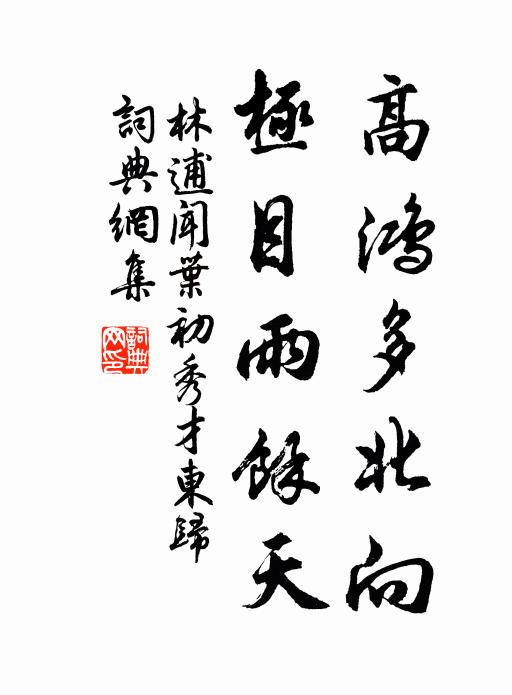 高鴻多北向
極目雨餘天
林逋聞葉初秀才東歸
詞典網集
詞典网印